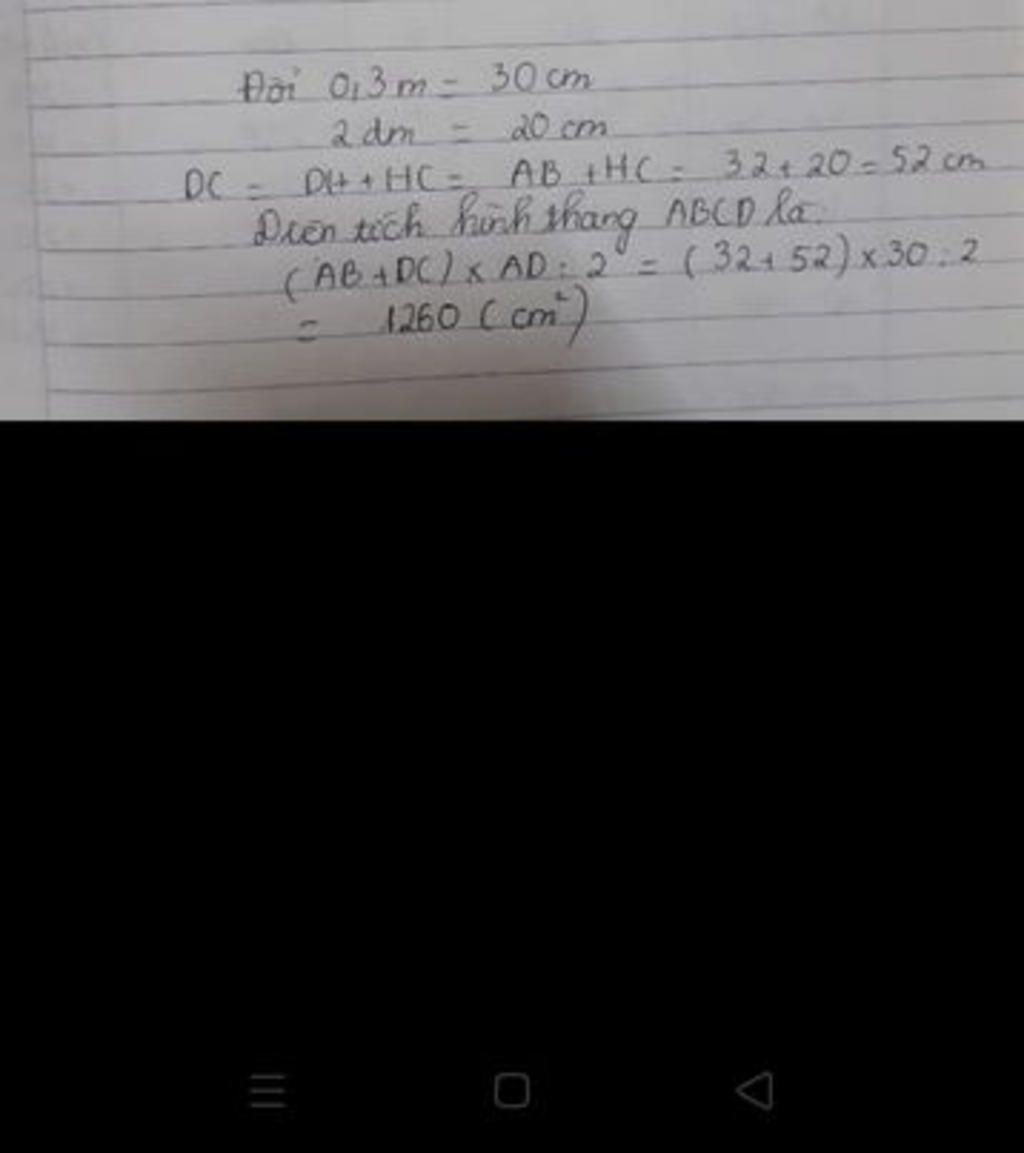 Đổi 0,3m = 30 cm
2 dm = 20 cm
DC = DH + HC = AB + HC = 32 + 20 = 52 cm
Diện tích hình thang ABCD là:
(AB + DC) x AD : 2 = (32 + 52) x 30 : 2
= 1260 (cm²)